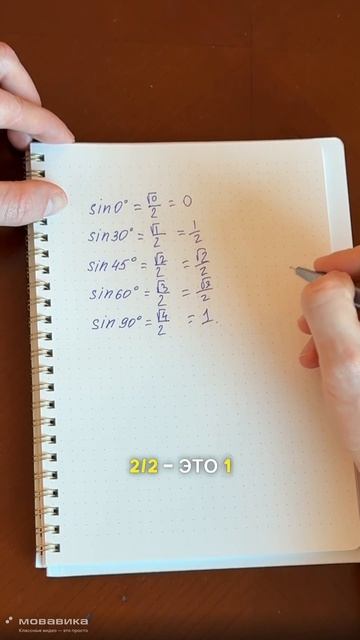 sin0° = √0/2 = 0
sin30° = √1/2 = 1/2
sin45° = √2/2 = √2/2
sin60° = √3/2 = √3/2
sin90° = √4/2 = 1.
2/2 – ЭТО 1
мовавика
Классные видео — это просто